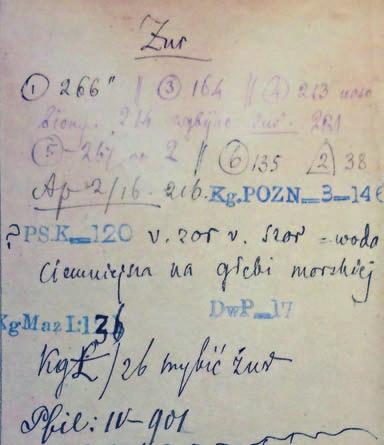 Żur
① 266" || ③ 164 || ④ 213 noso
214 wybijno żur. 221
⑤ 2 || ⑥ 135 [2] 38
Ap 2/16. 216. Kg.POZN_3_146
? PSK_120 v. zor v. szor = woda
ciemniejsza na głębi morskiej
KgMaz I:136 DwP_17
KgŁ/26 wybić żur
Phil: IV-901